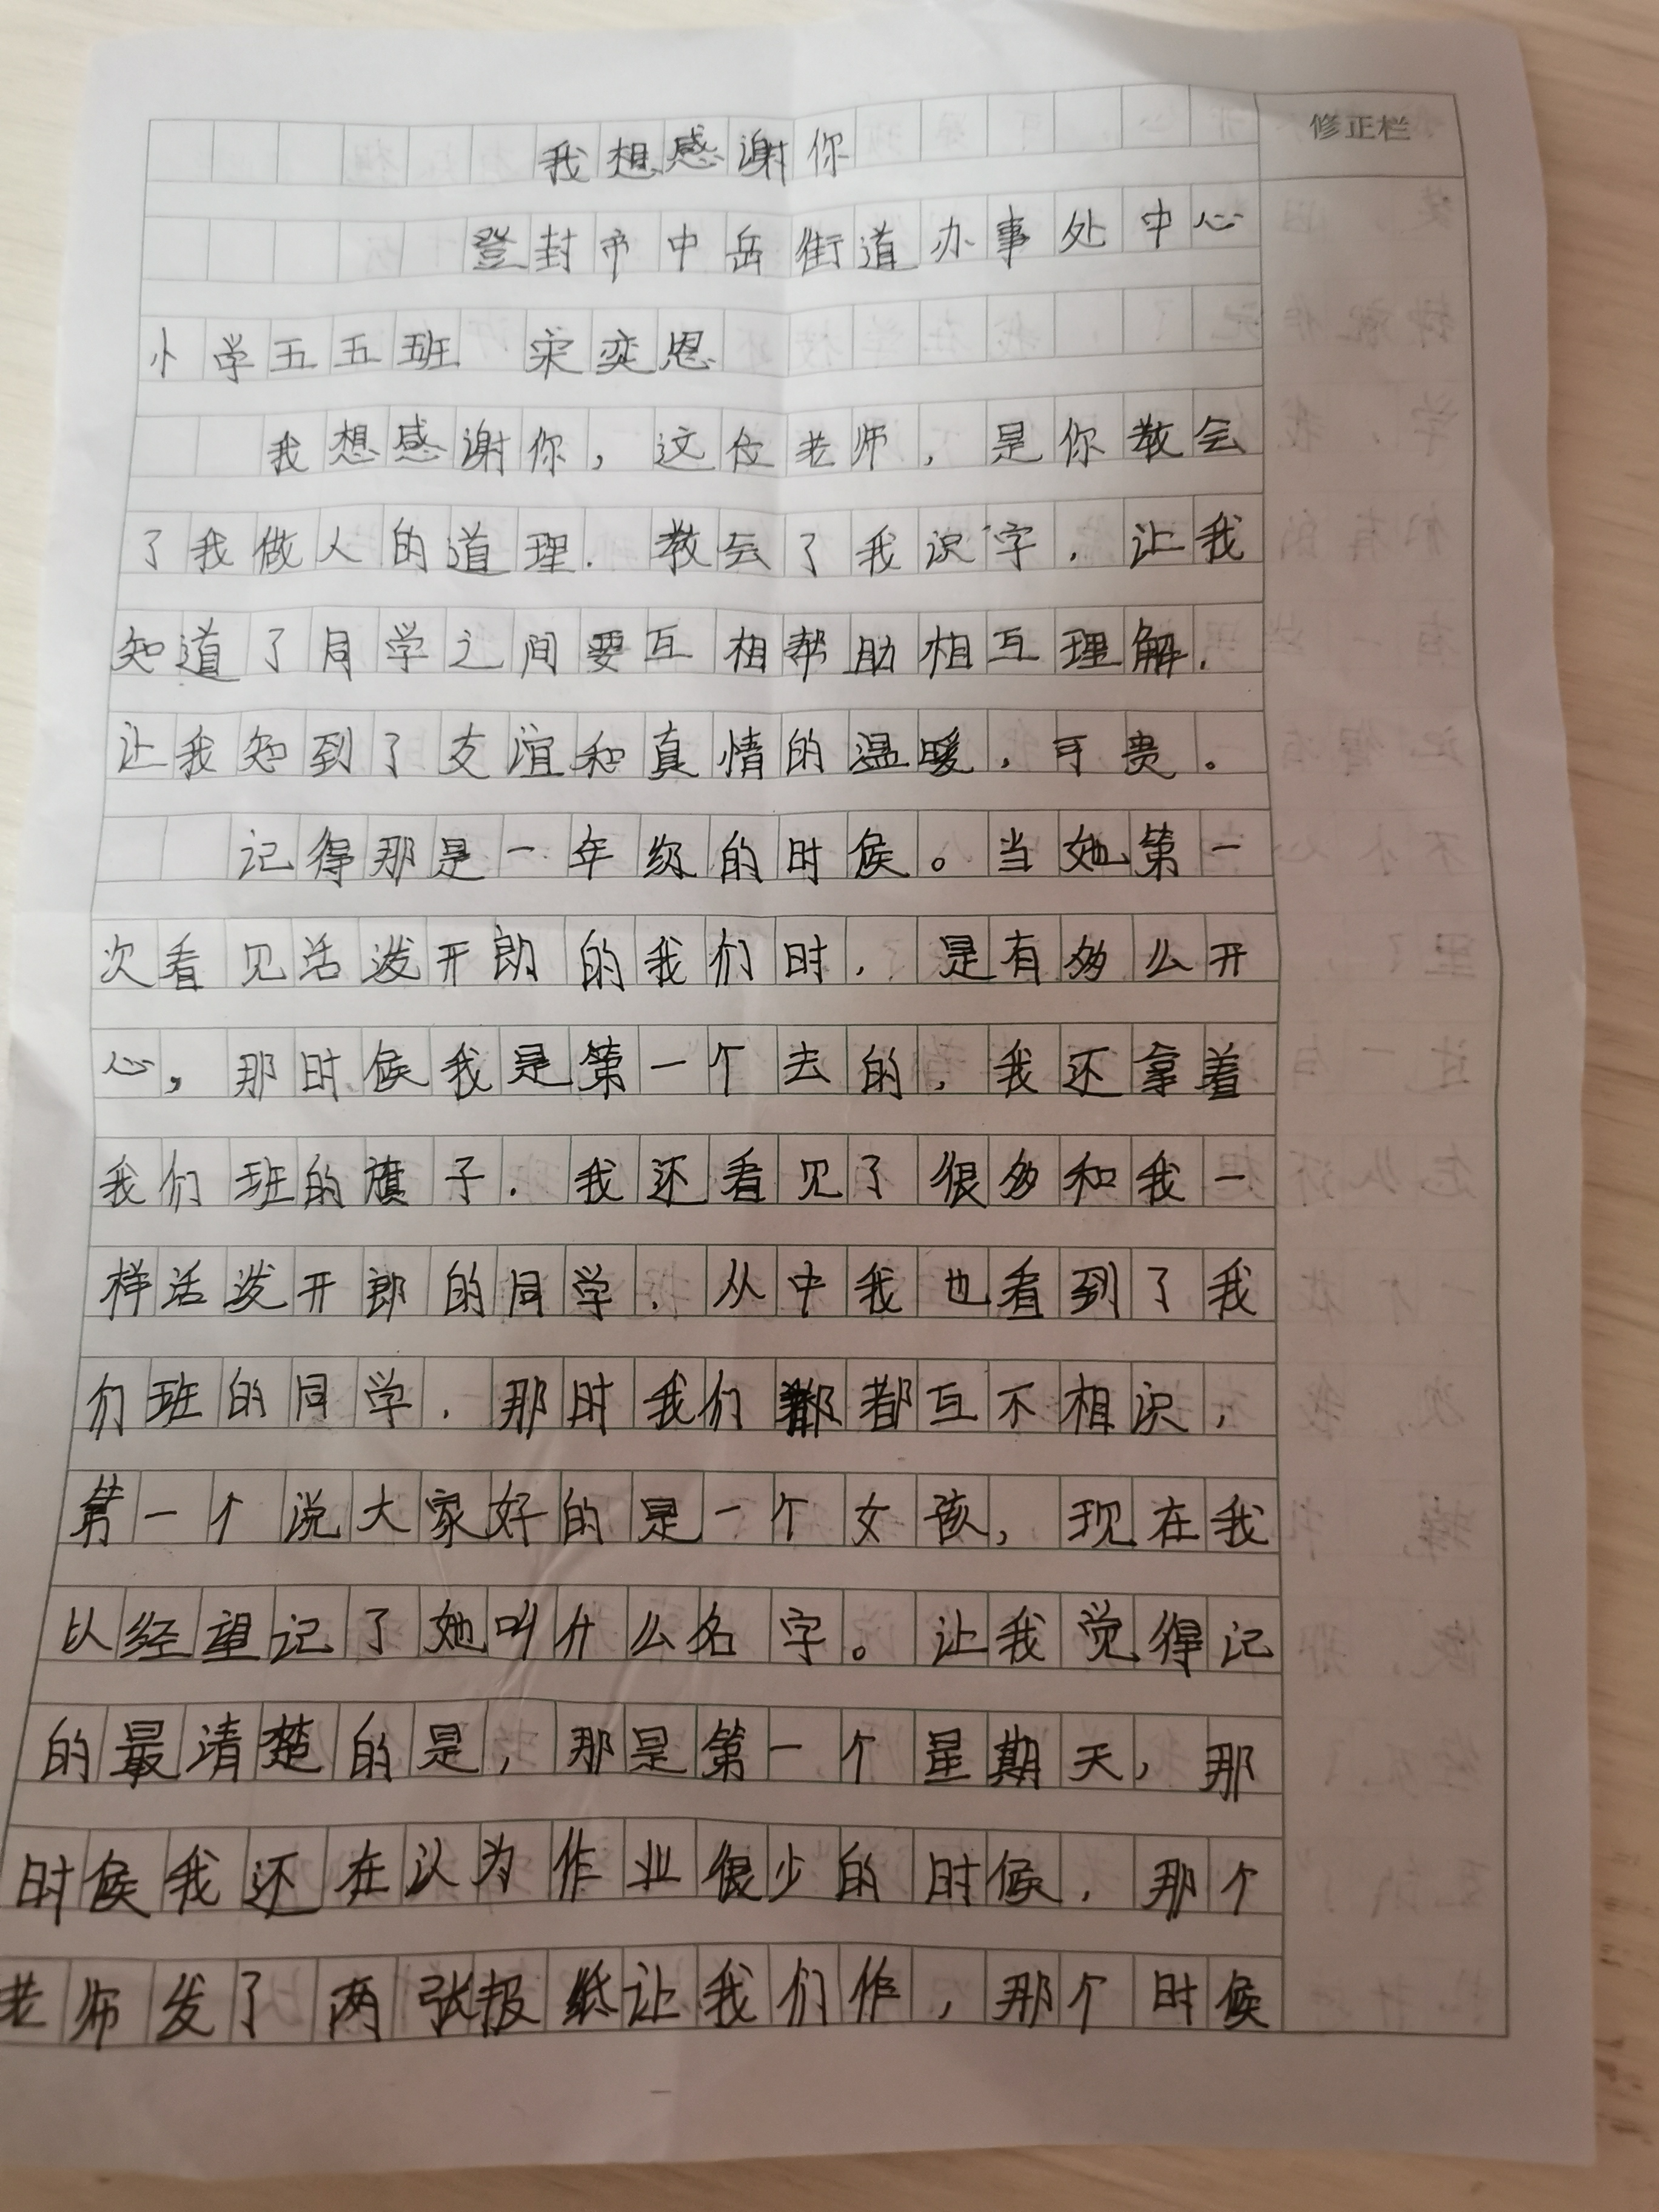 修正栏
我想感谢你
登封市中岳街道办事处中心
小学五五班 宋奕恩
我想感谢你，这位老师，是你教会
了我做人的道理.教会了我识字.让我
知道了同学之间要互相帮助相互理解.
让我知到了友谊和真情的温暖.可贵。
记得那是一年级的时候。当她第一
次看见活泼开朗的我们时.是有多么开
心,那时候我是第一个去的,我还拿着
我们班的旗子.我还看见了很多和我一
样活泼开郎的同学.从中我也看到了我
们班的同学.那时我们都互不相识,
第一个说大家好的是一个女孩,现在我
以经望记了她叫什么名字。让我觉得记
的最清楚的是,那是第一个星期天,那
时候我还在认为作业很少的时候.那个
老师发了两张报纸让我们作,那个时候